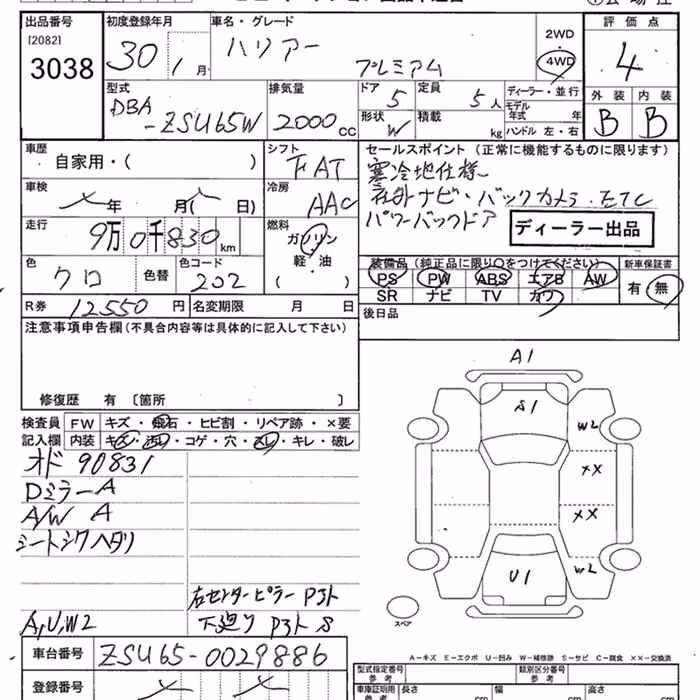 出品番号
[2082]
3038
初度登録年月
30年 1月
車名・グレード
ハリアー
プレミアム
2WD
4WD
評価点
4
型式
DBA
-ZSU65W
排気量
2000cc
ドア 5
定員 5人
ディーラー・並行
モデル年式 年
形状 W
積載 kg
ハンドル 左・右
外装 内装
B B
車歴
自家用・( )
シフト
FAT
セールスポイント (正常に機能するものに限ります)
寒冷地仕様
社外ナビ・バックカメラ・ETC
パワーバックドア
ディーラー出品
車検
年 月( 日)
冷房
AAC
走行
9万0千830km
燃料
ガソリン
軽・油
( )
色
クロ
色替
色コード
202
装備品 (純正品に限り○をつけてください)
PS PW ABS エアB AW
SR ナビ TV カワ
新車保証書
有・無
R券 12550円
名変期限 月 日
後日品
注意事項申告欄(不具合内容等は具体的に記入して下さい)
修復歴 有 〔箇所 〕
検査員
記入欄
FW キズ・飛石・ヒビ割・リペア跡・×要
内装 キズ・汚レ・コゲ・穴・スレ・キレ・破レ
オド 90831
Dミラー A
A/W A
シートシワ ヘタリ
右センターピラー P3ト
A,U,W2
下廻り P3ト S
A1
A1
W2
××
××
W2
U1
スペア
A-キズ E-エクボ U-凹み W-補修跡 S-サビ C-腐食 ××-交換済
車台番号 ZSU65-0029886
登録番号
型式指定番号
参考
類別区分番号
参考
車庫証明用
参考
長さ cm
幅 cm
高さ cm